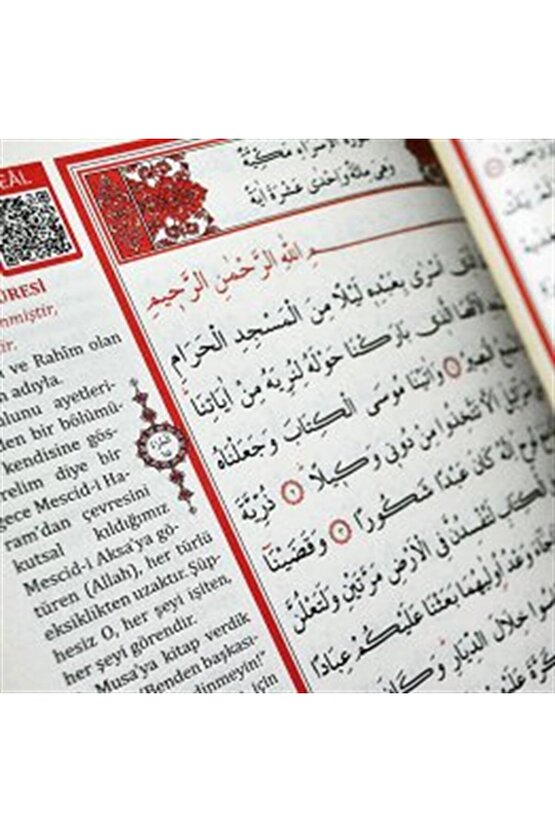 EAL
ÛRESİ
nmiştir,
ve Rahîm olan
adıyla.
ulunu ayetleri-
den bir bölümü-
kendisine gös-
relim diye bir
gece Mescid-i Ha-
ram'dan çevresini
kutsal kıldığımız
Mescid-i Aksa'ya gö-
türen (Allah), her türlü
eksiklikten uzaktır. Şüp-
hesiz O, her şeyi işiten,
her şeyi görendir.
Musa'ya kitap verdik
"Benden başkası-
dinmeyin!"
için
سُورَةُ الْاِسْرَاءِ مَكِّيَّةٌ
وَهِيَ مِائَةٌ وَاِحْدٰى عَشْرَةَ اٰيَةً
اللّٰهِ الرَّحْمٰنِ الرَّحٖيمِ
اَسْرٰى بِعَبْدِهٖ لَيْلًا مِنَ الْمَسْجِدِ الْحَرَامِ
الْاَقْصَا الَّذٖى بَارَكْنَا حَوْلَهُ لِنُرِيَهُ مِنْ اٰيَاتِنَا
الْبَصٖيرُ ١ وَاٰتَيْنَا مُوسَى الْكِتَابَ وَجَعَلْنَاهُ
اَلَّا تَتَّخِذُوا مِنْ دُونٖى وَكٖيلًا ٢ ذُرِّيَّةَ
نُوحٍ اِنَّهُ كَانَ عَبْدًا شَكُورًا ٣ وَقَضَيْنَا
الْكِتَابِ لَتُفْسِدُنَّ فِى الْاَرْضِ مَرَّتَيْنِ وَلَتَعْلُنَّ
وَعْدُ اُولٰيهُمَا بَعَثْنَا عَلَيْكُمْ عِبَادًا
خِلَالَ الدِّيَارِ وَكَانَ